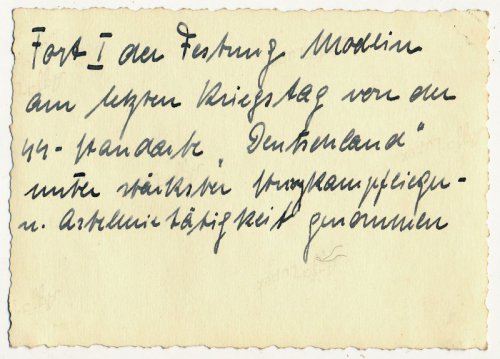 Fort I der Festung Modlin
am letzten Kriegstag von der
SS-Standarte „Deutschland"
unter stärkster Sturzkampfflieger-
u. Artillerietätigkeit genommen